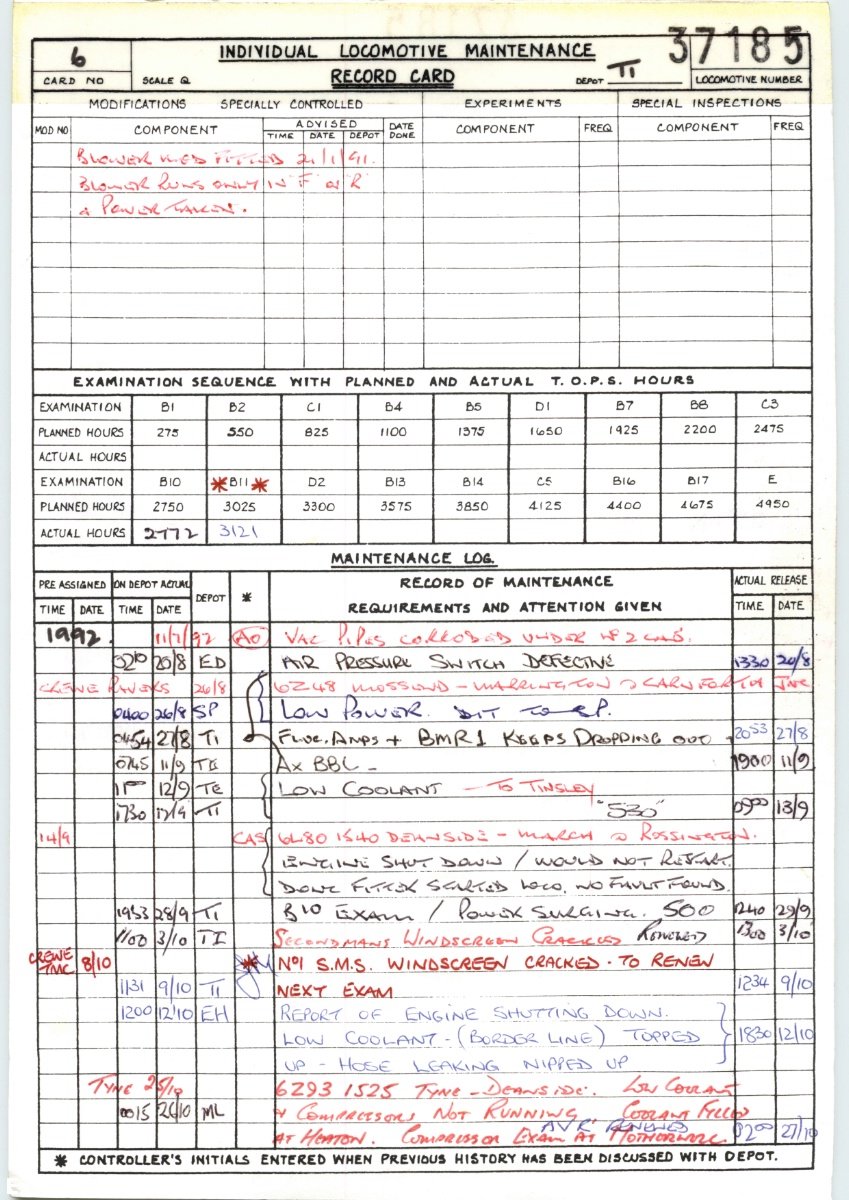 6 INDIVIDUAL LOCOMOTIVE MAINTENANCE 37185
CARD NO SCALE Q. RECORD CARD DEPOT TI LOCOMOTIVE NUMBER
MODIFICATIONS SPECIALLY CONTROLLED EXPERIMENTS SPECIAL INSPECTIONS
MOD NO COMPONENT ADVISED DATE DONE COMPONENT FREQ. COMPONENT FREQ
TIME DATE DEPOT
BLOWER MOD FITTED 21/1/91.
BLOWER RUNS ONLY IN 'F' OR 'R'
& POWER TAKEN.
EXAMINATION SEQUENCE WITH PLANNED AND ACTUAL T.O.P.S. HOURS
EXAMINATION B1 B2 C1 B4 B5 D1 B7 B8 C3
PLANNED HOURS 275 550 825 1100 1375 1650 1925 2200 2475
ACTUAL HOURS
EXAMINATION B10 *B11* D2 B13 B14 C5 B16 B17 E
PLANNED HOURS 2750 3025 3300 3575 3850 4125 4400 4675 4950
ACTUAL HOURS 2772 3121
MAINTENANCE LOG.
PRE ASSIGNED ON DEPOT ACTUAL DEPOT * RECORD OF MAINTENANCE ACTUAL RELEASE
TIME DATE TIME DATE REQUIREMENTS AND ATTENTION GIVEN TIME DATE
1992. 11/7/92 AO VAC PIPES CORRODED UNDER Nº 2 CAB.
0210 20/8 ED AIR PRESSURE SWITCH DEFECTIVE 1330 20/8
CREWE 26/8 6Z48 MOSSEND - WARRINGTON @ CARNFORTH
0400 26/8 SP LOW POWER. DIT TO SP.
0454 27/8 TI FLUC. AMPS + BMR1 KEEPS DROPPING OUT 2053 27/8
0745 11/9 TE AX BBC - 1900 11/9
12/9 TE LOW COOLANT - TO TINSLEY
1730 12/9 TI "530" 0900 13/9
14/9 CAS 6L80 1540 DEANSIDE - MARCH @ ROSSINGTON.
ENGINE SHUT DOWN / WOULD NOT RESTART.
DONC FITTER STARTED LOCO. NO FAULT FOUND.
1953 28/9 TI B10 EXAM / POWER SURGING. 500 1240 29/9
1100 3/10 TI SECONDMANS WINDSCREEN CRACKED RENEWED 1300 3/10
CREWE TMC 8/10 * Nº1 S.M.S. WINDSCREEN CRACKED. TO RENEW
1131 9/10 TI NEXT EXAM 1234 9/10
1200 12/10 EH REPORT OF ENGINE SHUTTING DOWN.
LOW COOLANT - (BORDER LINE) TOPPED 1830 12/10
UP - HOSE LEAKING NIPPED UP
TYNE 25/10 6Z93 1525 TYNE - DEANSIDE. LOW COOLANT
0015 26/10 ML & COMPRESSORS NOT RUNNING COOLANT FILLED
AVR RENEWED
AT HEATON. COMPRESSOR EXAM AT MOTHERWELL 0200 27/10
* CONTROLLER'S INITIALS ENTERED WHEN PREVIOUS HISTORY HAS BEEN DISCUSSED WITH DEPOT.